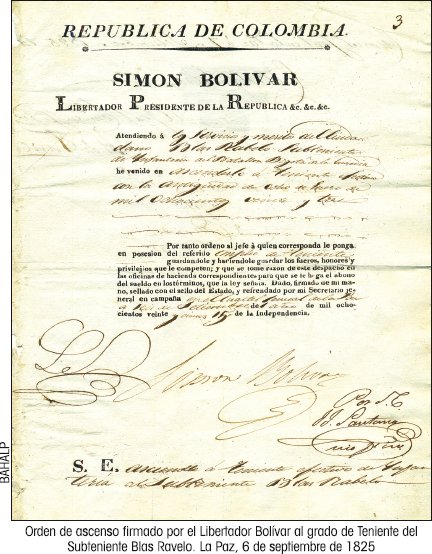 3
REPUBLICA DE COLOMBIA.
SIMON BOLIVAR
LIBERTADOR PRESIDENTE DE LA REPUBLICA &c. &c. &c.
Atendiendo á los servicios y meritos del Ciuda
dano Blas Rabelo Subteniente
de Infanteria del Batallon Bogotá de la
he venido en ascenderlo á Teniente
con la antigüedad de ocho de de
mil ochocientos veinte y tres
Por tanto ordeno al jefe á quien corresponda le ponga
en posesion del referido empleo de teniente
guardandole y haciéndole guardar los fueros, honores y
privilejios que le competen; y que se tome razon de este despacho en
las oficinas de hacienda correspondientes para que se le haga el abono
del sueldo en los términos, que la ley señala. Dado, firmado de mi ma-
no, sellado con el sello del Estado, y refrendado por mi Secretario je-
neral en campaña en el Cuartel General de la Paz
á de Setiembre de de mil ocho-
cientos veinte y cinco 15 de la Independencia.
Simon Bolivar
Por S. E.
Santana
S. E. asciende á teniente efectivo de Infan
teria al Subteniente Blas Rabelo
BAHALP
Orden de ascenso firmado por el Libertador Bolívar al grado de Teniente del
Subteniente Blas Ravelo. La Paz, 6 de septiembre de 1825